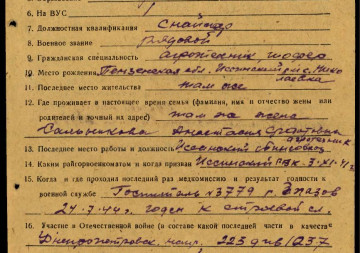 6. На ВУС 1
7. Должностная квалификация снайпер
8. Военное звание рядовой
9. Гражданская специальность
10. Место рождения Пензенская обл. Иссинский р-н с. Нико
лаевка
11. Последнее место жительства там же
12. Где проживает в настоящее время семья (фамилия, имя и отчество жены или
родителей и точный их адрес) там же жена
Сальникова Анастасия
13. Последнее место работы и должность Иссинский
14. Каким райгорвоенкоматом и когда призван Иссинский РВК 3.XI.41
15. Когда и где проходил последний раз медкомиссию и результат годности к
военной службе Госпиталь №3779 г. Глазов
24.7.44г. годен к строевой сл.
16. Участие в Отечественной войне (в составе какой последней части и в качестве
Днепропетровск. напр. 223 див 1037